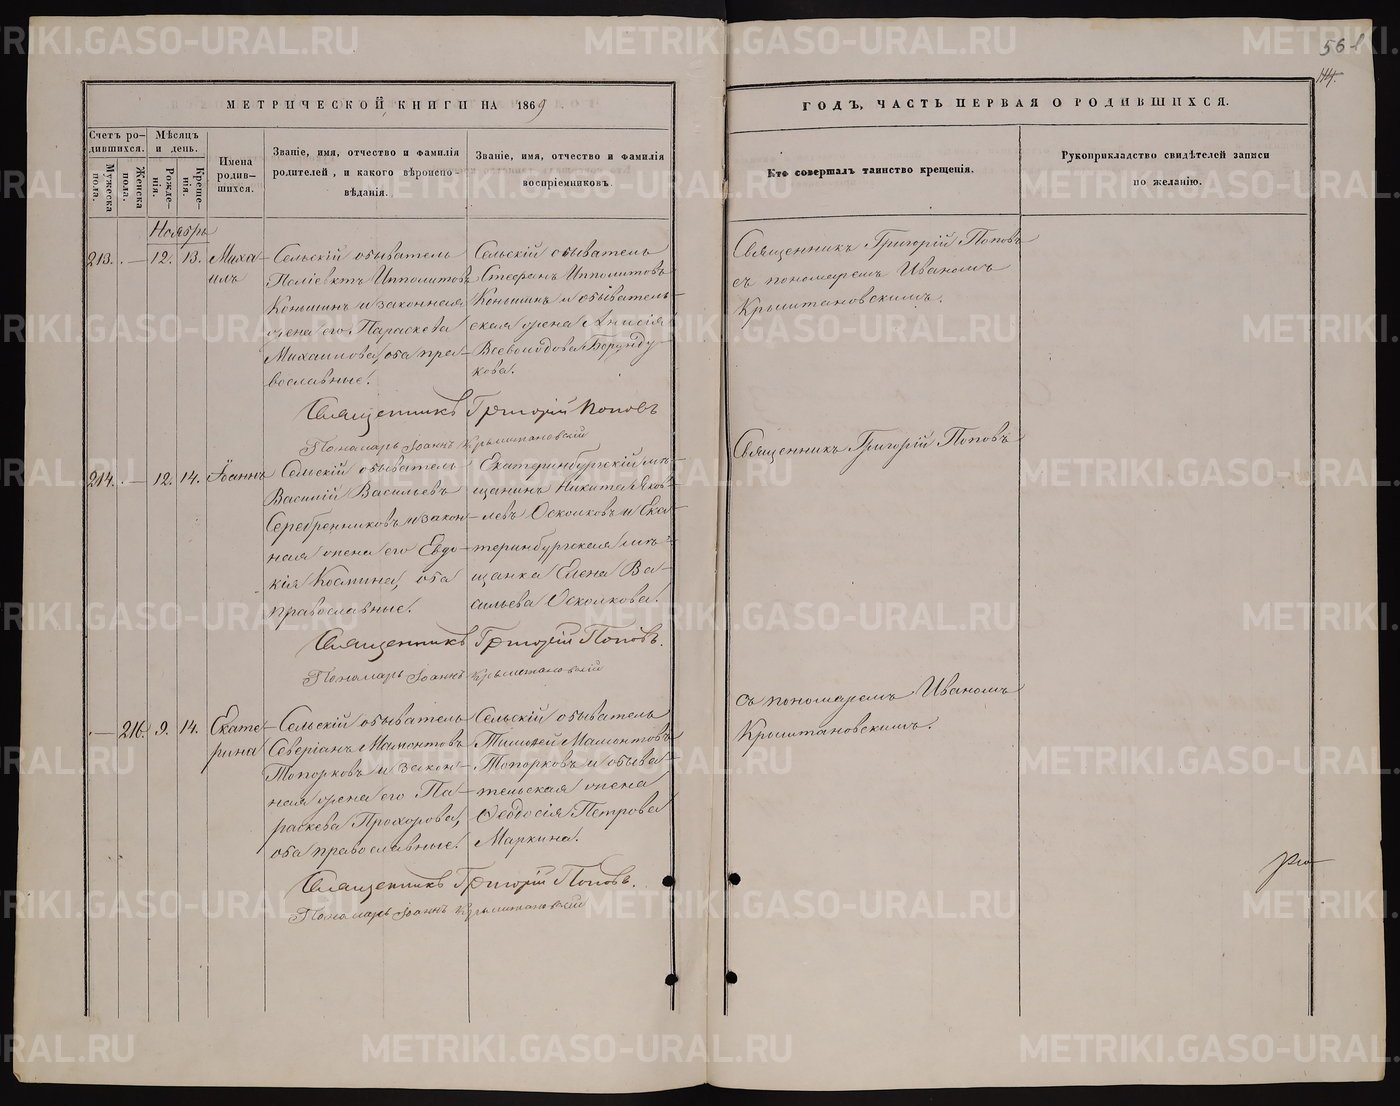 56-1
МЕТРИЧЕСКОЙ КНИГИ НА 1869
ГОДЪ, ЧАСТЬ ПЕРВАЯ О РОДИВШИХСЯ.
Счетъ ро-
дившихся.
Мужеска
пола.
Женска
пола.
Мѣсяцъ
и день.
Рожде-
нія.
Креще-
нія.
Имена
родив-
шихся.
Званіе, имя, отчество и фамилія
родителей, и какого вѣроиспо-
вѣданія.
Званіе, имя, отчество и фамилія
воспріемниковъ.
Кто совершалъ таинство крещенія.
Рукоприкладство свидѣтелей записи
по желанію.
Ноябрь
213. — 12. 13. Миха-
илъ
Сельскій обыватель
Поліевктъ Ипполитовъ
Коньшинъ и законная
жена его Параскева
Михаилова, оба пра-
вославные.
Сельскій обыватель
Стефанъ Ипполитовъ
Коньшинъ и обыватель-
ская жена Анисія
Всеволодова Борунду-
кова.
Священникъ Григорій Поповъ
съ пономаремъ Иваномъ
Крыштановскимъ.
Священникъ Григорій Поповъ
Пономарь Іоаннъ Крыштановскій
214. — 12. 14. Іоаннъ
Сельскій обыватель
Василій Васильевъ
Серебренниковъ и закон-
ная жена его Евдо-
кія Космина, оба
православные.
Екатеринбургскій мѣ-
щанинъ Никита Яков-
левъ Осколковъ и Ека-
теринбургская мѣ-
щанка Елена Ва-
сильева Осколкова.
Священникъ Григорій Поповъ
Священникъ Григорій Поповъ.
Пономарь Іоаннъ Крыштановскій
— 216. 9. 14. Екате-
рина
Сельскій обыватель
Северіанъ Мамонтовъ
Топорковъ и закон-
ная жена его Па-
раскева Прохорова,
оба православные.
Сельскій обыватель
Тимофей Мамонтовъ
Топорковъ и обыва-
тельская жена
Ѳеодосія Петрова
Маркина.
съ пономаремъ Иваномъ
Крыштановскимъ.
Священникъ Григорій Поповъ.
Пономарь Іоаннъ Крыштановскій
METRIKI.GASO-URAL.RU